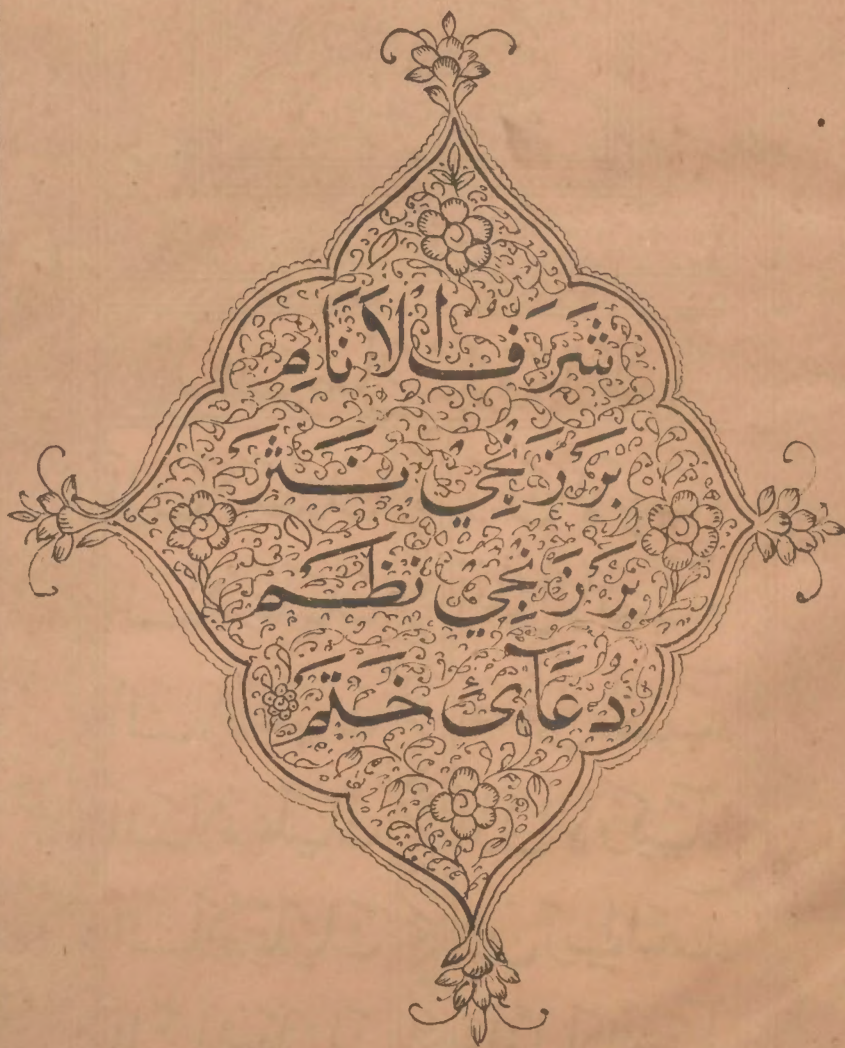 شَرَفَ الْاَنَامِ
بَرْزَنْجِيْ نَثَرْ
بَرْزَنْجِيْ نَظَمْ
دُعَآئ خَتَمْ